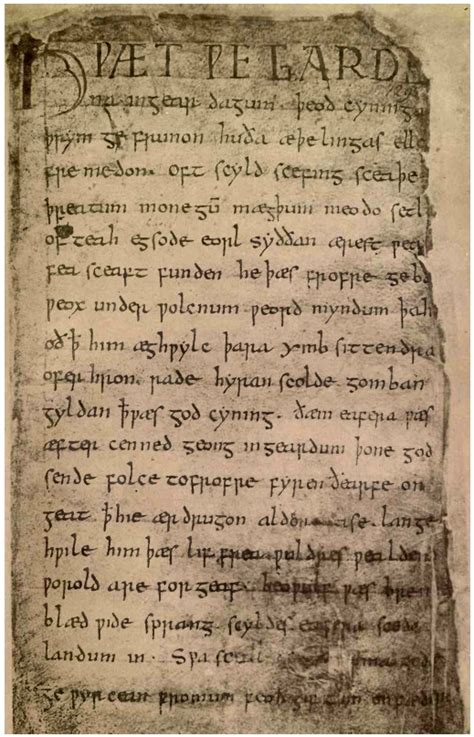 HǷÆT ǷE GARDE
na in gear dagum. þeod cyninga
þrym ge frunon huða æþelingas elle
fre medon. oft scyld scefing sceaþe
þreatum monegū mægþum meodo setl
of teah egsode eorl syððan ærest ƿear
fea sceaft funden he þæs frofre geba
ƿeox under ƿolcnum ƿeorð myndum þah
oð ꝥ him æghƿylc þara ymb sittendra
ofer hron rade hyran scolde gomban
gyldan ꝥ ƿæs god cyning. ðæm eafera ƿæs
æfter cenned geong in geardum þone god
sende folce tofrofre fyren ðearfe on
geat ꝥ hie ær drugon aldor ase. lange
hƿile him þæs lif frea ƿuldres ƿealden
ƿorold are for geaf. beoƿulf ƿæs breme
blæd ƿide sprang scyldes eafera scede
landum in. Sƿa sceal guma gode
ge ƿyrcean fromum feoh giftum on fæder